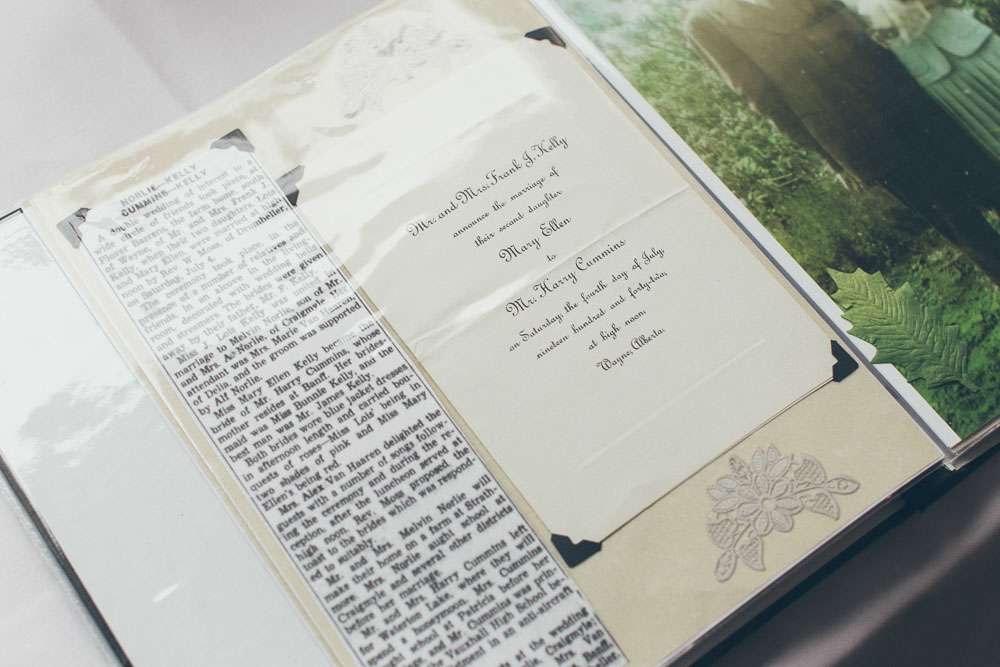 NORLIE—KELLY
CUMMINS—KELLY
wedding interest in a
wide circle of friends took place at
of Wayne
Kelly, where their two daughters, Lois
and Mary Ellen, were married by the
Rev. W Moss of Drumheller,
on Saturday, July 4.
The ceremonies took place in the
presence of a number of relatives and
friends, in an
were given
away by their father, Mr. Kelly.
Miss J. Lois Kelly was united in
marriage to Melvin Norlie, son of Mr.
and Mrs. A. Norlie, of Craigmyle. Her
attendant was Mrs. Marie Van Haaren,
of Delia, and the groom was supported
by Alf Norlie.
Miss Mary Ellen Kelly became the
bride of Mr. Harry Cummins, whose
mother resides at Banff. Her brides-
maid was Miss Bunnie Kelly, and the
best man was Mr. James Kelly.
Both brides wore blue jacket dresses
in afternoon length and carried bou-
quets of roses—Miss Lois' being in
two shades of pink and Miss Mary
Ellen's being red.
Mrs. Alex Van Haaren delighted the
guests with a number of songs follow-
ing the ceremony and during the re-
ception, after the luncheon served at
high noon. Rev. Moss proposed the
toast to the brides which was respond-
ed to suitably.
Mr. and Mrs. Melvin Norlie will
make their home on a farm at Strath-
more. Mrs. Norlie taught school at
Craigmyle and several other districts
before her marriage.
Mr. and Mrs. Harry Cummins left
on a honeymoon to
Waterton Lake, where they will
spend Mrs. Cummins
taught school at Patricia before her
marriage and Mr. Cummins was prin-
cipal of the Vauxhall High School be-
in an anti-aircraft
at the wedding
Norlie, Craigmyle,
Mrs. Van
Mueller
Mr. and Mrs. Frank J. Kelly
announce the marriage of
their second daughter
Mary Ellen
to
Mr. Harry Cummins
on Saturday, the fourth day of July,
nineteen hundred and forty-two,
at high noon
Wayne, Alberta.